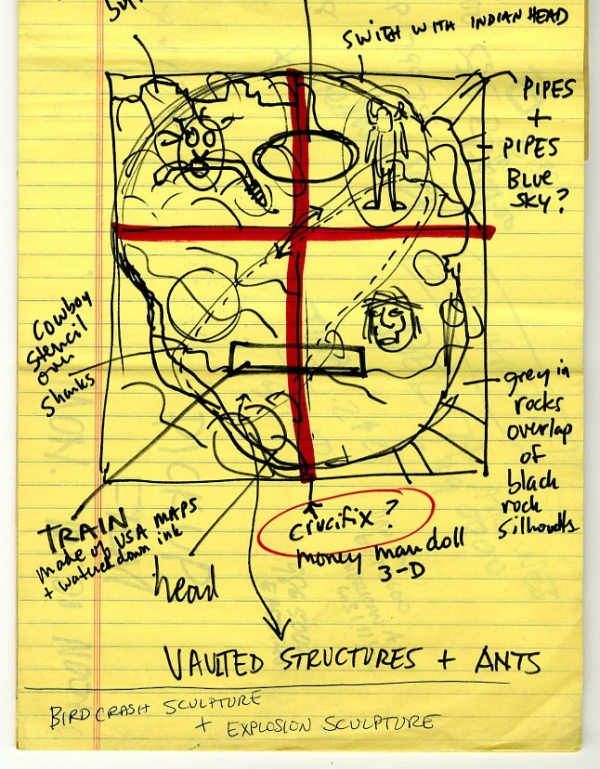 SWITCH WITH INDIAN HEAD
PIPES
+
PIPES
BLUE
SKY?
Cowboy
stencil
over
sharks
grey in
rocks
overlap
of
black
rock
silhouetts
TRAIN
made of USA MAPS
+ watered down ink
head
crucifix?
money man doll
3-D
VAULTED STRUCTURES + ANTS
BIRDCRASH SCULPTURE
+ EXPLOSION SCULPTURE